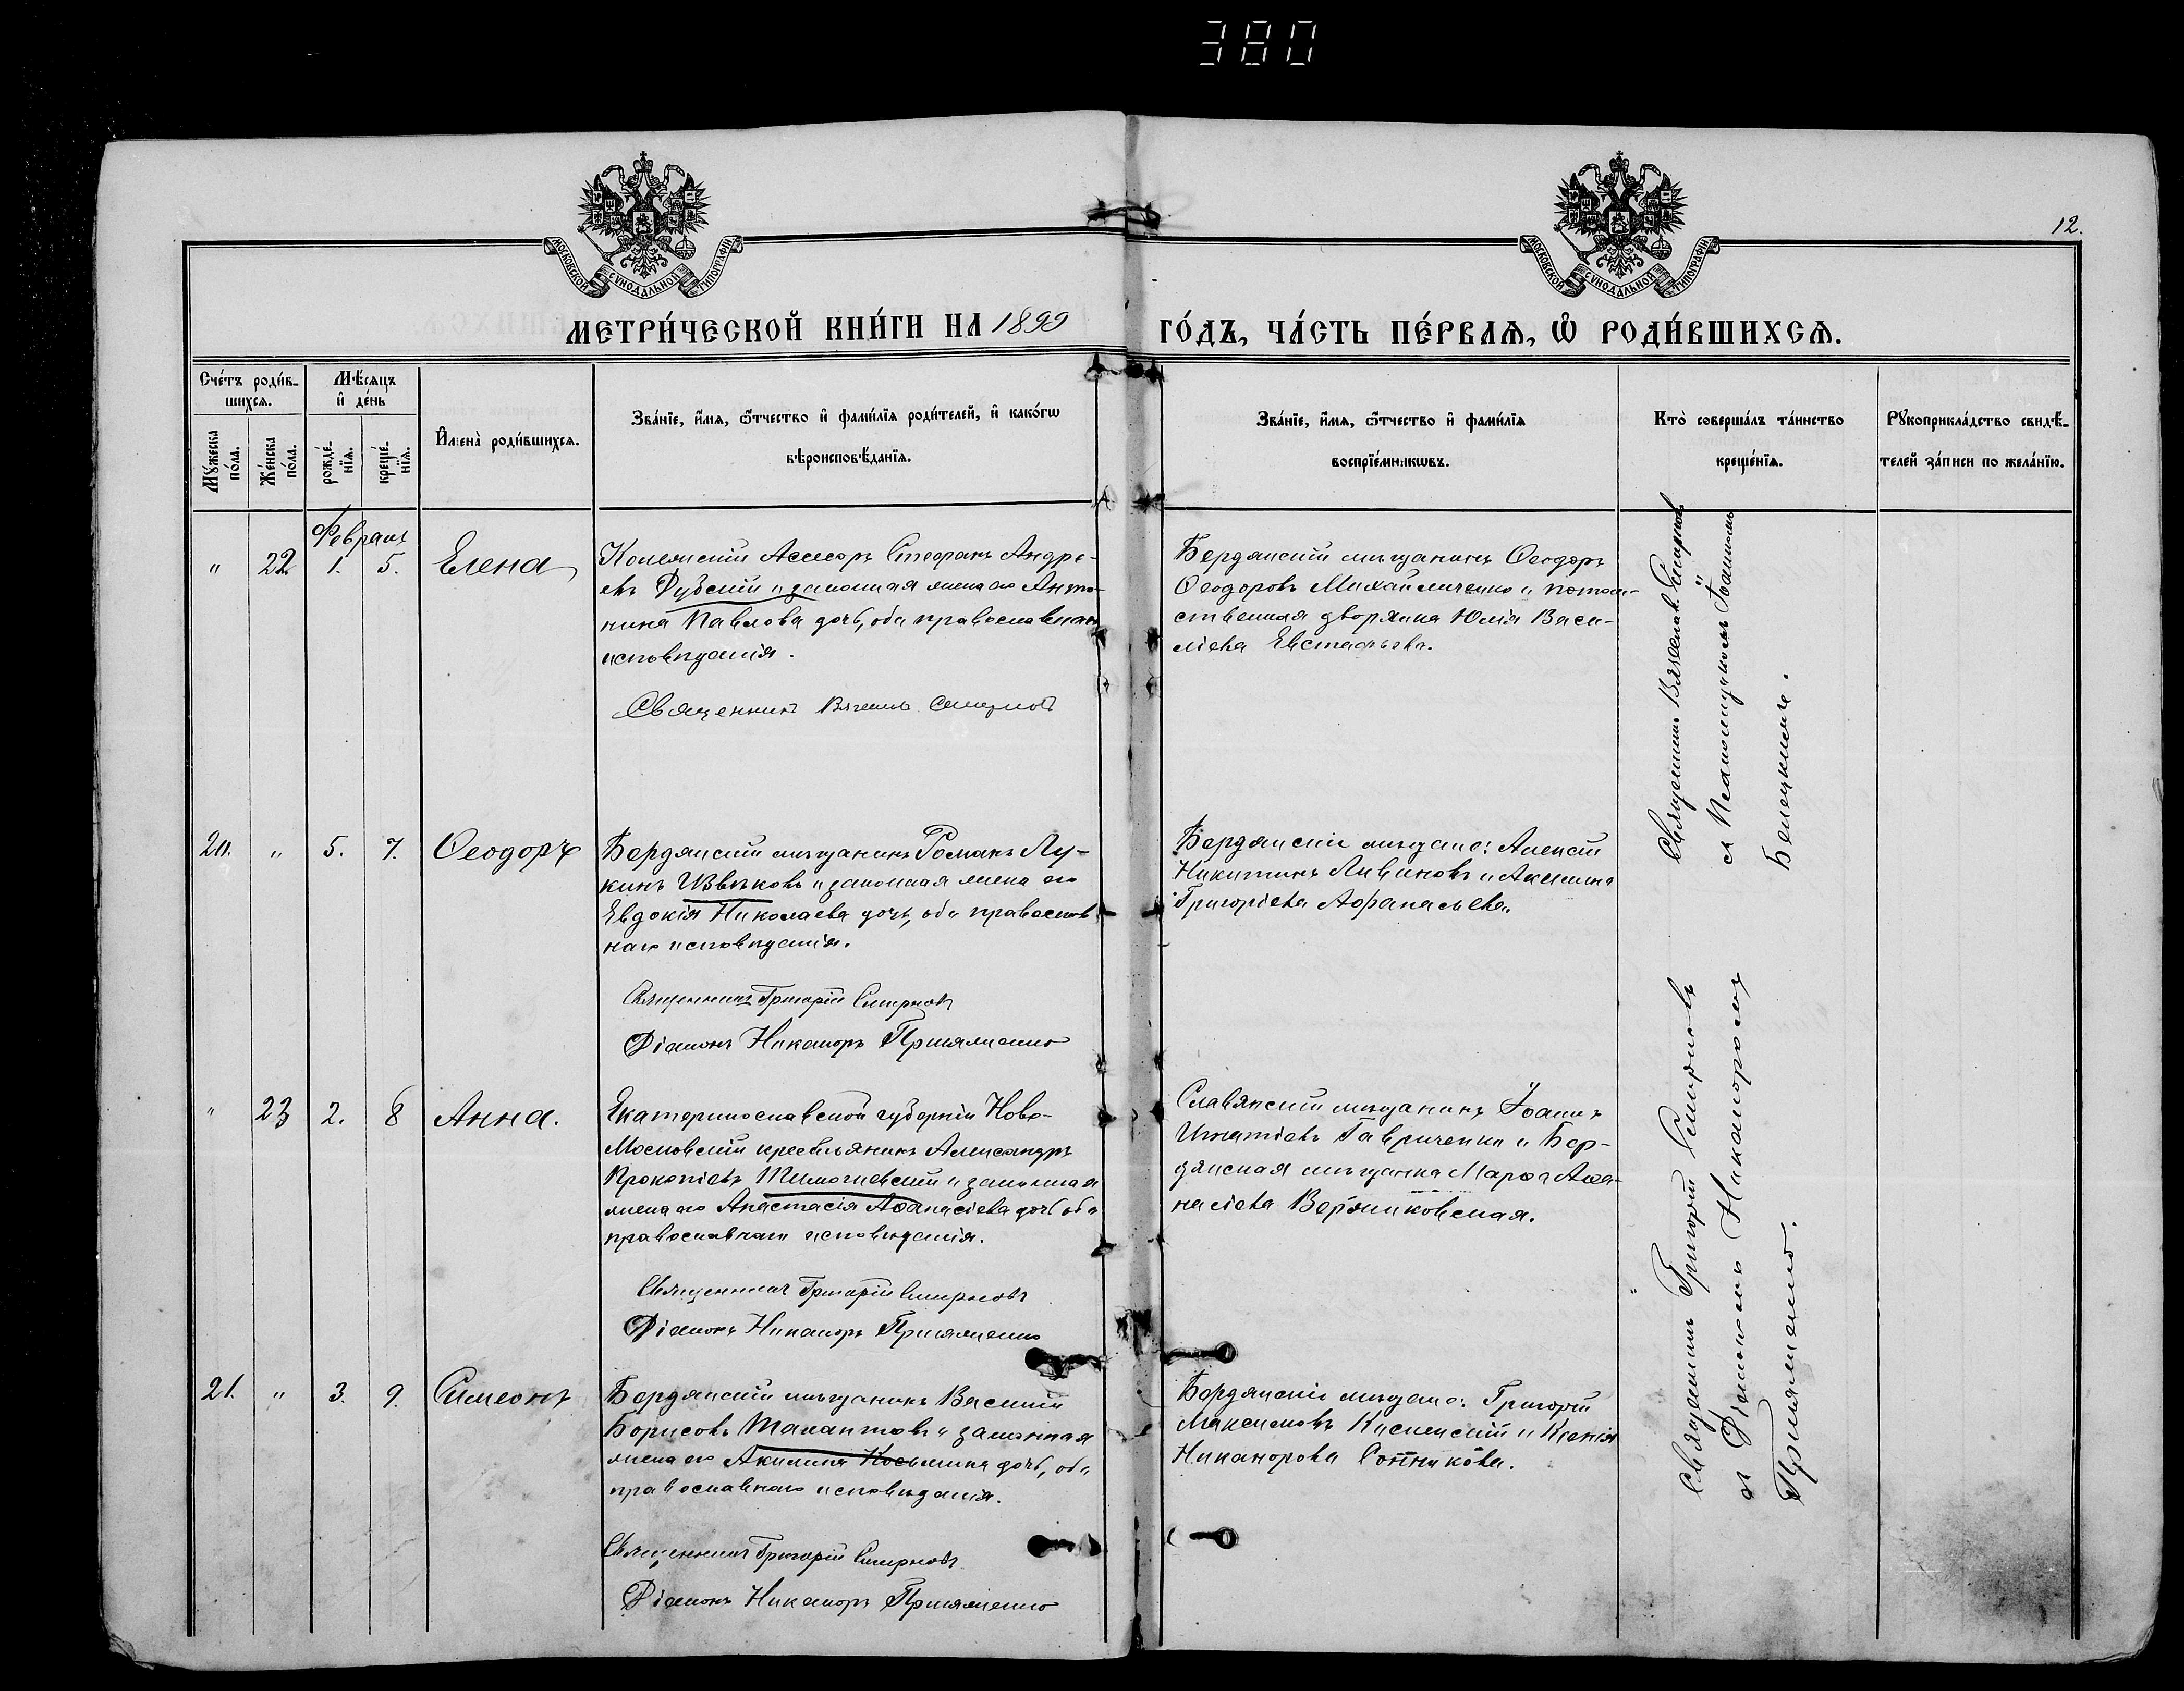 380
МОСКОВСКОЙ СѴНОДАЛЬНОЙ ТИПОГРАФІИ
МОСКОВСКОЙ СѴНОДАЛЬНОЙ ТИПОГРАФІИ
12.
МЕТРИ́ЧЕСКОЙ КНИ́ГИ НА 1899
ГО́ДЪ, ЧА́СТЬ ПЕ́РВАѦ, Ѡ҆ РОДИ́ВШИХСѦ.
Сче́тъ роди́в-
шихсѧ.
Мꙋ́жеска по́ла.
Же́нска по́ла.
Мѣ́сѧцъ
и҆ де́нь
рожде́-
нїѧ.
креще́-
нїѧ.
И҆мена̀ роди́вшихсѧ.
Зва́нїе, и҆́мѧ, ѻ҆́тчество и҆ фами́лїѧ роди́телей, и҆ како́гѡ
вѣроисповѣ́данїѧ.
Зва́нїе, и҆́мѧ, ѻ҆́тчество и҆ фами́лїѧ
воспрїе́мникѡвъ.
Кто̀ соверша́лъ та́инство
креще́нїѧ.
Рꙋкоприкла́дство свидѣ́-
телей за́писи по жела́нїю.
Февраль
" 22 1. 5. Елена
Колежскій Асессоръ Стефанъ Андре-
евъ Дубскій и законная жена его Анто-
нина Павлова дочь, оба православнаго
исповѣданія.
Священникъ Смирновъ
Бердянскій мѣщанинъ Ѳеодоръ
Ѳеодоровъ Михайличенко и потом-
ственная дворянка Юлія Васи-
ліева Евстафьева.
Священникъ Смирновъ
съ Псаломщикомъ Іоанномъ
20. " 5. 7. Ѳеодоръ
Бердянскій мѣщанинъ Романъ Лу-
кинъ Извѣковъ и законная жена его
Евдокія Николаева дочь, оба православ
наго исповѣданія.
Священникъ Григорій Смирновъ
Діаконъ Никаноръ
Бердянскіе мѣщане: Алексій
Никитинъ Ливиновъ и Акилина
Григоріева Афанасьева.
" 23 2. 8 Анна.
Екатеринославской губерніи Ново-
Московскій крестьянинъ Александръ
Прокопіевъ и законная
жена его Анастасія Аѳанасіева дочь оба
православнаго исповѣданія.
Священникъ Григорій Смирновъ
Діаконъ Никаноръ
Славянскій мѣщанинъ Іоаннъ
Игнатіевъ Гавриченко и Бер-
дянская мѣщанка Марѳа Аѳа-
насіева
Священникъ Григорій Смирновъ
съ Діакономъ Никаноромъ
21. " 3. 9. Симеонъ
Бердянскій мѣщанинъ Василій
Борисовъ Талантовъ и законная
жена его Акилина Косьмина дочь, оба
православнаго исповѣданія.
Священникъ Григорій Смирновъ
Діаконъ Никаноръ
Бердянскіе мѣщане: Григорій
Максимовъ и Ксенія
Никанорова Сотникова.